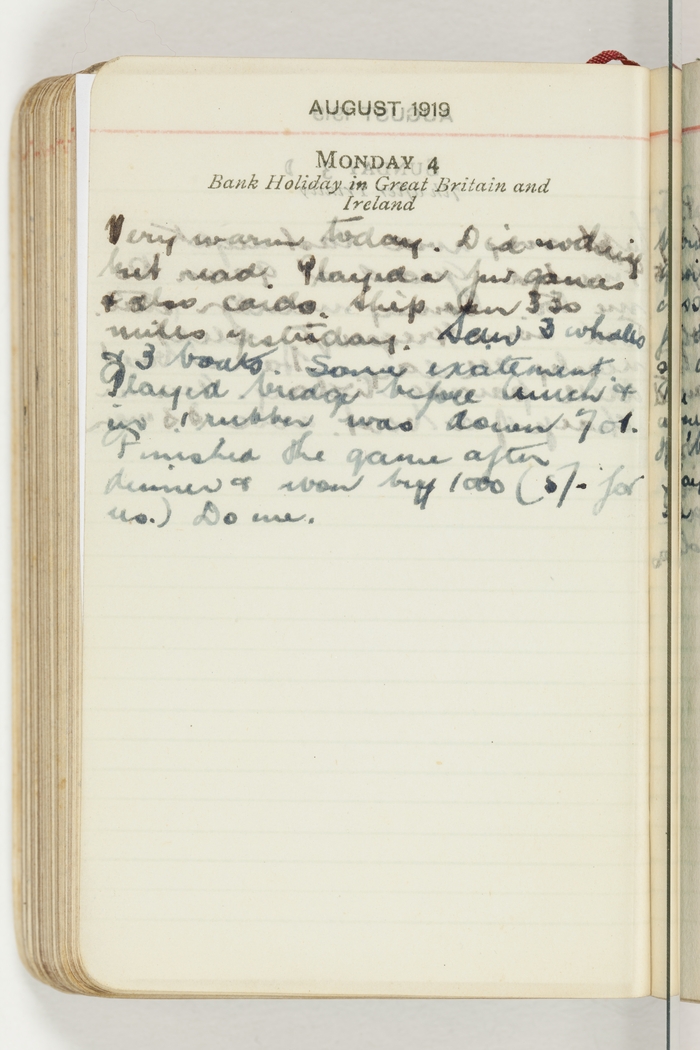 AUGUST 1919
MONDAY 4
Bank Holiday in Great Britain and
Ireland
Very warm today. Did nothing
but read. Played a few games
& also cards. Ship ran 330
miles yesterday. Saw 3 whales
& 3 boats. Some exatement
Played bridge before lunch &
in 1 rubber was down 701.
Finished the game after
dinner & won by 1000 (5/- for
us.)